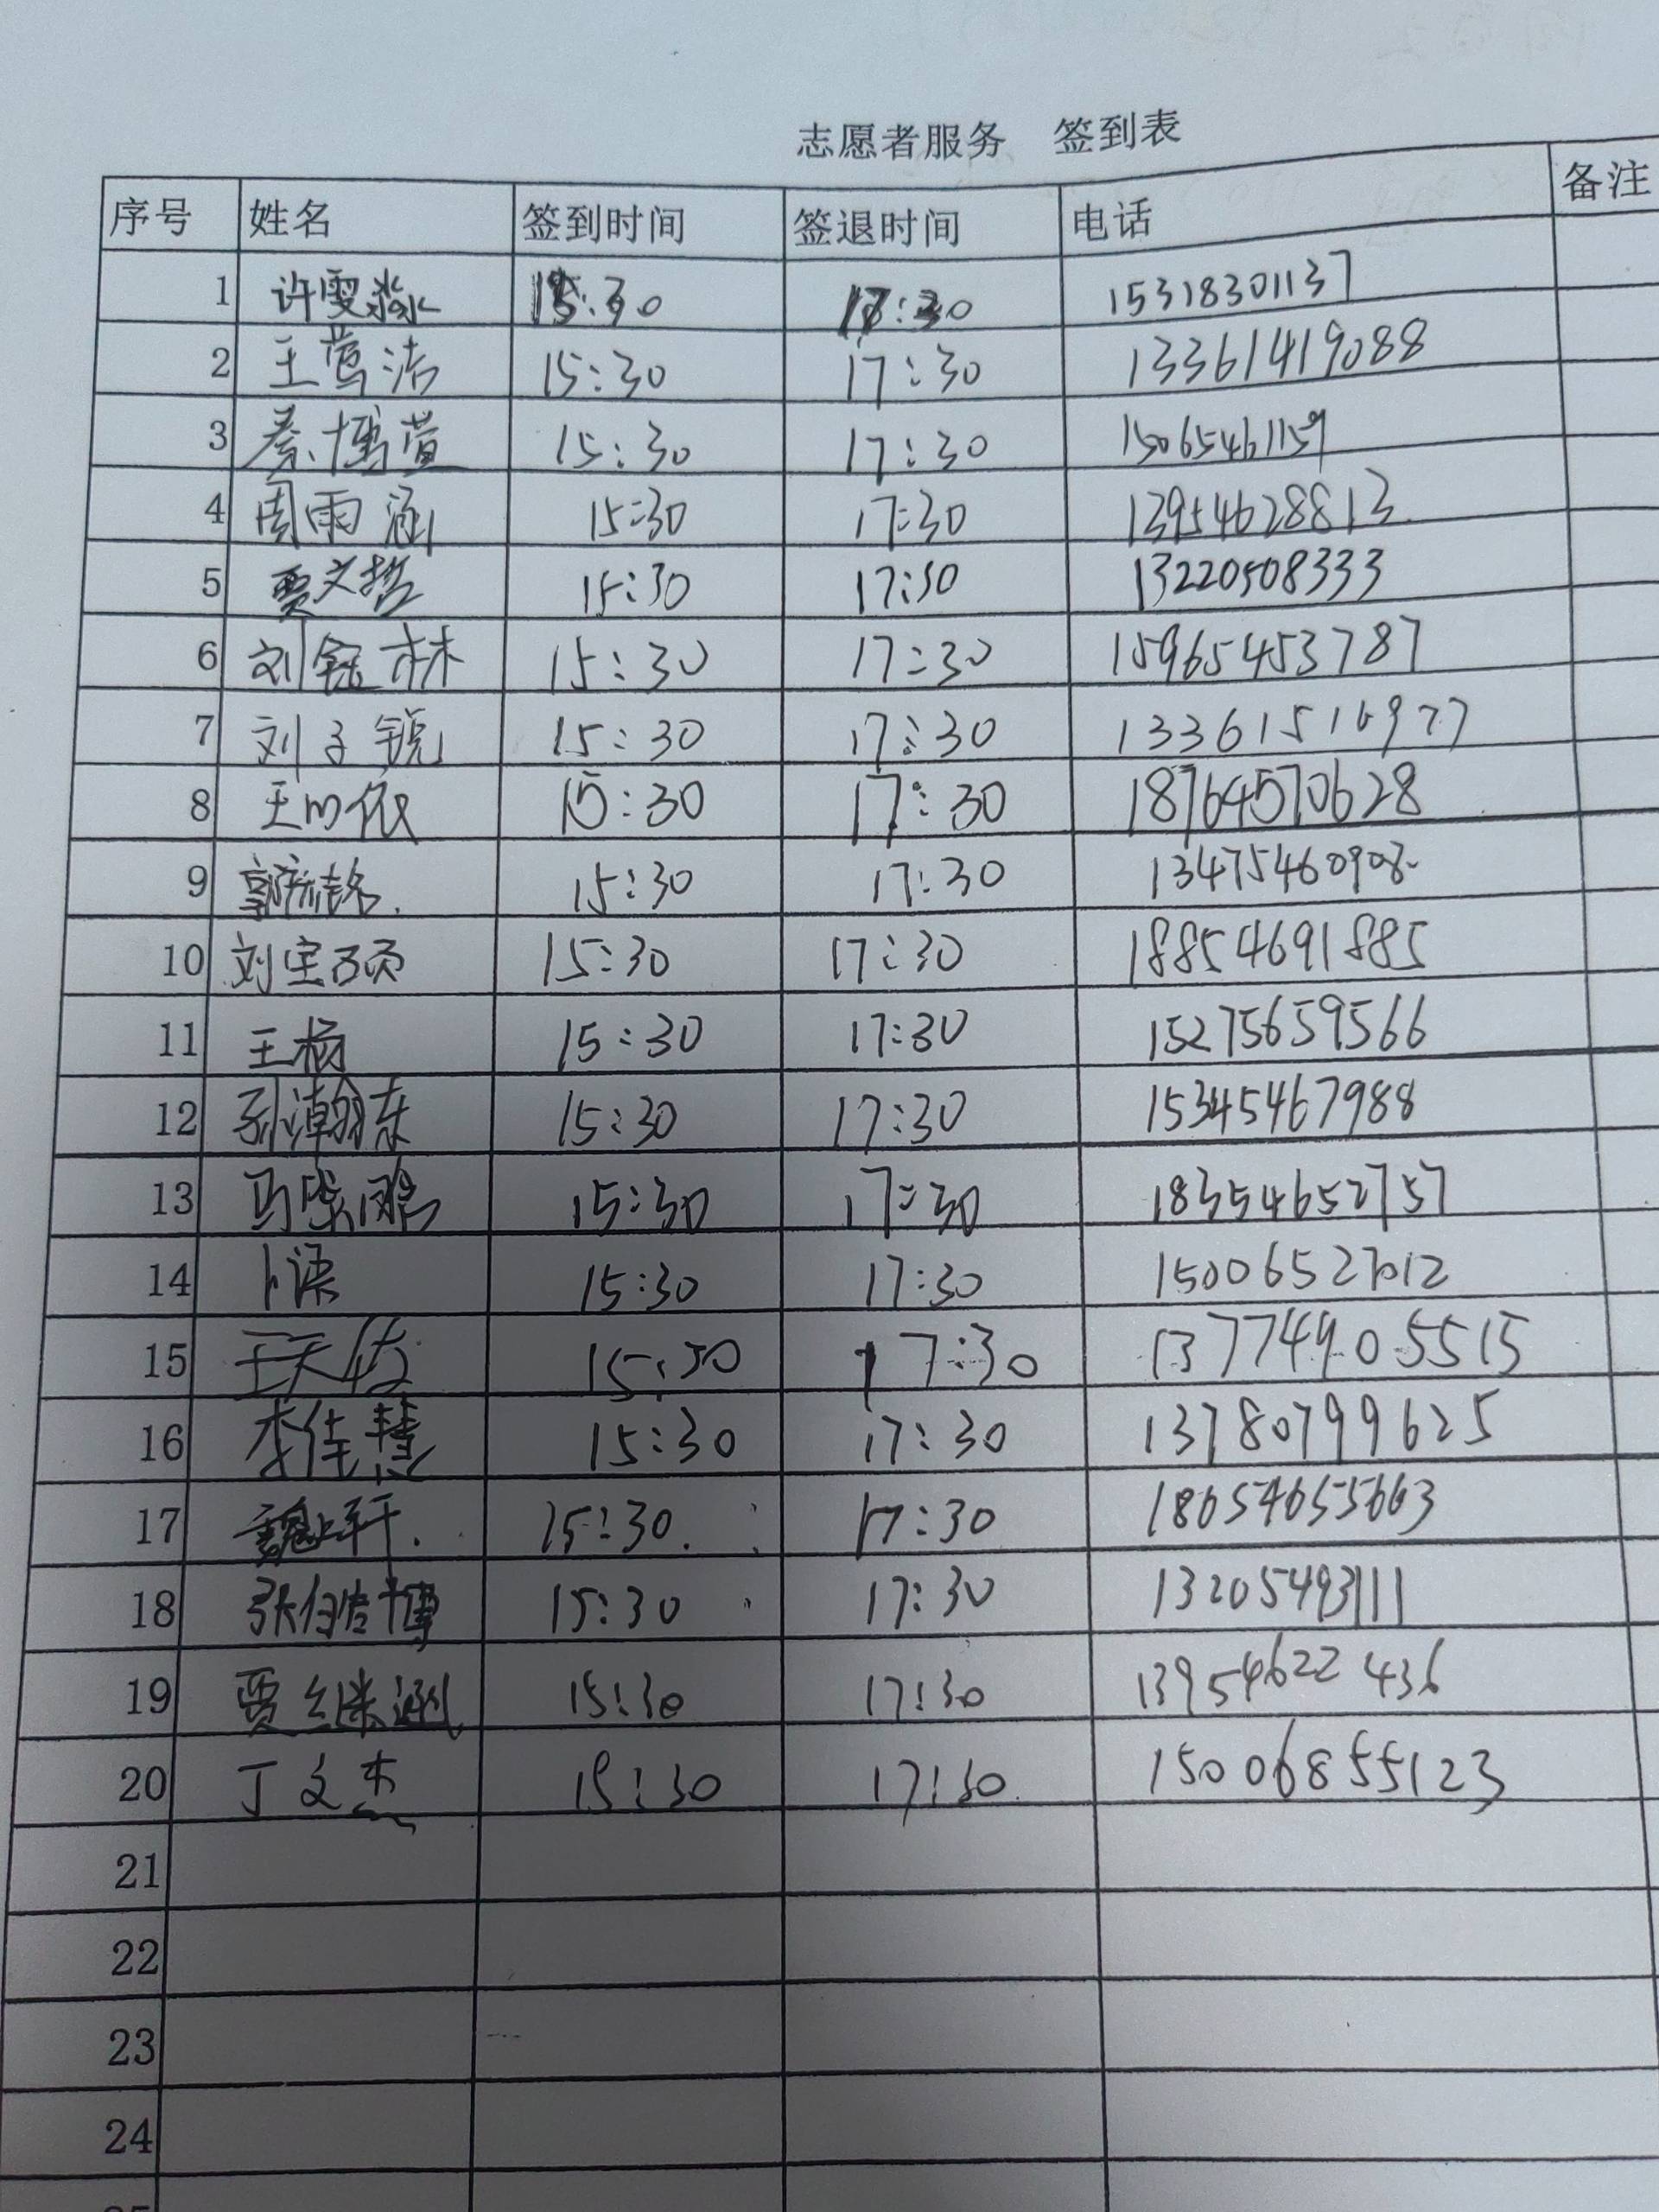 志愿者服务 签到表
序号 姓名 签到时间 签退时间 电话 备注
1 许雯淼 15:30 17:30 15318301137
2 王莺洁 15:30 17:30 13361419088
3 秦博萱 15:30 17:30 15065461159
4 周雨涵 15:30 17:30 13954628813
5 贾文哲 15:30 17:30 13220508333
6 刘钰林 15:30 17:30 15965453787
7 刘子锐 15:30 17:30 13361516977
8 王 依 15:30 17:30 18764570628
9 郭 铭 15:30 17:30 13475460908
10 刘宝硕 15:30 17:30 18854691885
11 王杨 15:30 17:30 15275659566
12 孙瀚东 15:30 17:30 15345467988
13 马 鹏 15:30 17:30 18354652757
14 卜 15:30 17:30 15006527012
15 王天佑 15:30 17:30 13774905515
16 李佳慧 15:30 17:30 13780799625
17 魏 轩 15:30 17:30 18654655663
18 张 博 15:30 17:30 13205493111
19 贾继涵 15:30 17:30 13954622436
20 丁文杰 15:30 17:30 15006855123
21
22
23
24